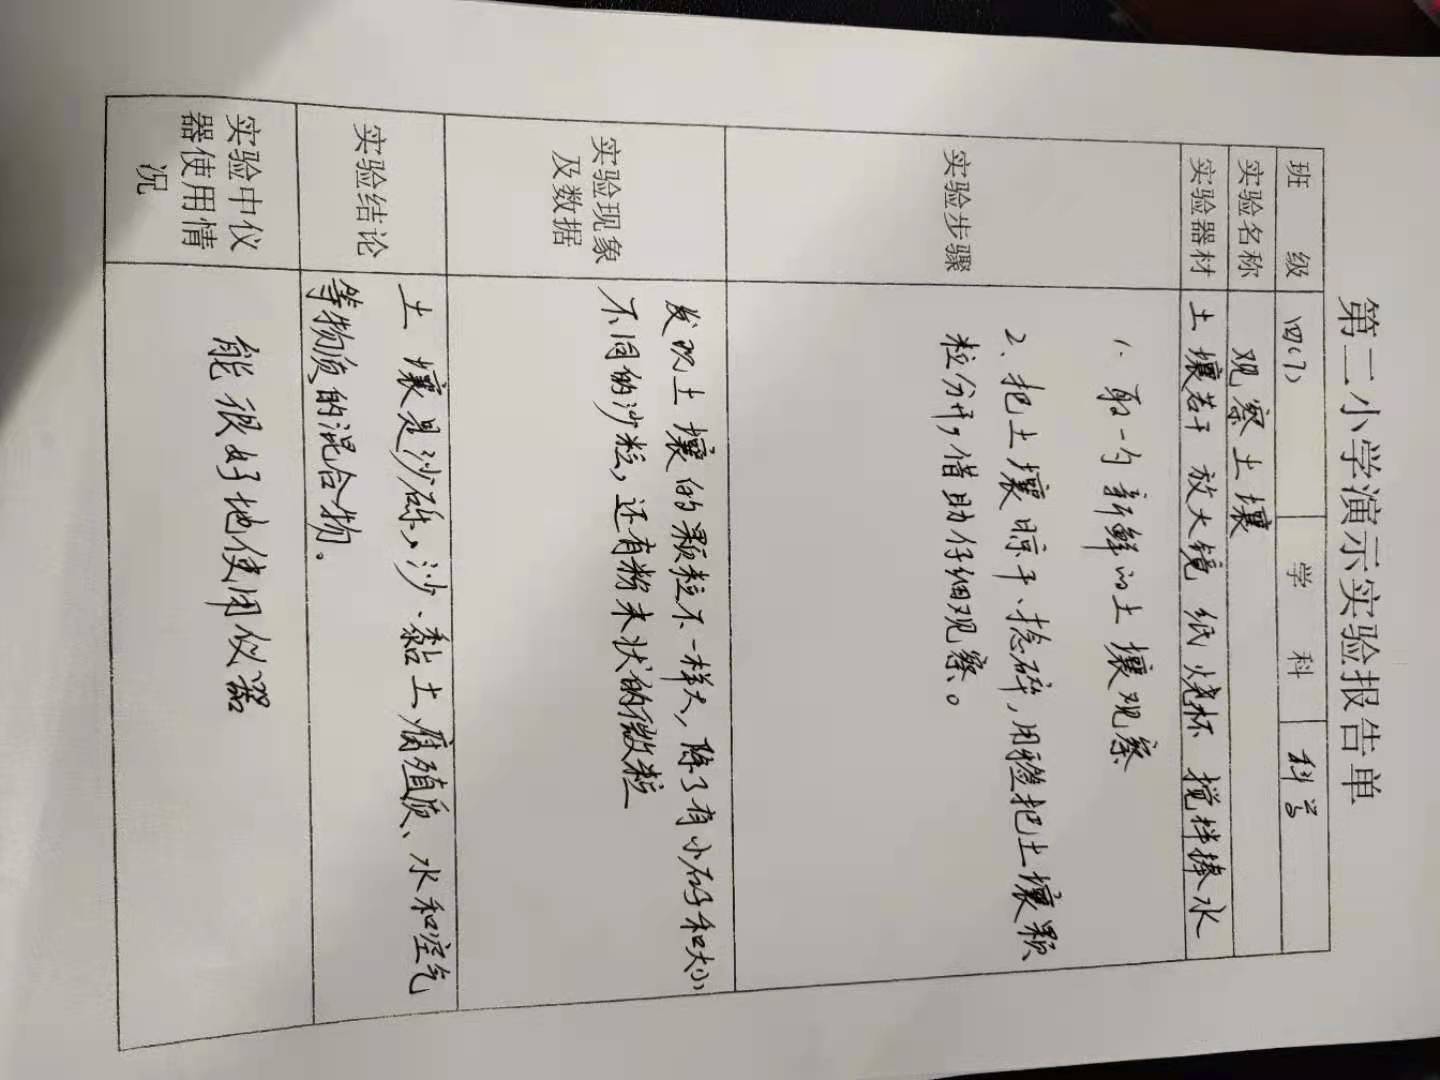 第二小学演示实验报告单
班 级 四(7) 学 科 科学
实验名称 观察土壤
实验器材 土壤若干 放大镜 纸 烧杯 搅拌棒 水
实验步骤
1. 取一勺新鲜的土壤观察
2、把土壤晾干、捻碎,用 把土壤颗
粒分开,借助仔细观察。
实验现象
及数据
发现土壤的颗粒不一样大,除了有小石子和大小
不同的沙粒,还有粉末状的微粒
实验结论
土壤是沙砾、沙、黏土腐殖质、水和空气
等物质的混合物。
实验中仪
器使用情
况
能很好地使用仪器